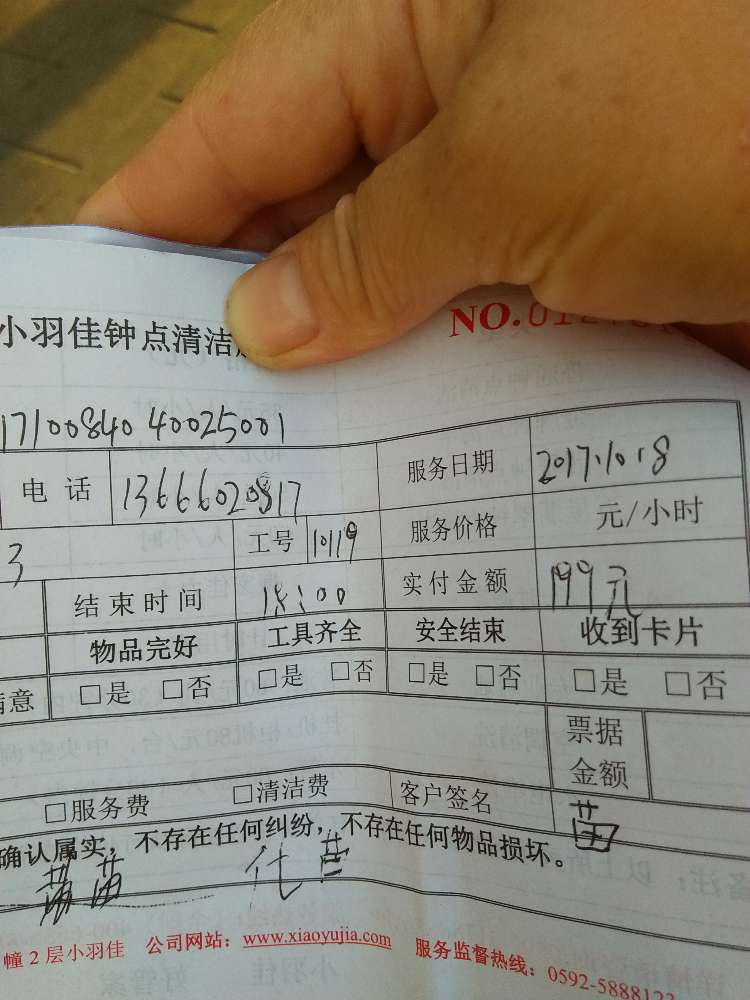 小羽佳钟点清洁
NO.
17100840 40025001
电话 13666020817 服务日期 2017.10.8
3 工号 10119 服务价格 元/小时
结束时间 18:00 实付金额 199元
物品完好 工具齐全 安全结束 收到卡片
满意 □是 □否 □是 □否 □是 □否 □是 □否
票据金额
□服务费 □清洁费 客户签名 苗
确认属实，不存在任何纠纷，不存在任何物品损坏。
幢2层小羽佳 公司网站：www.xiaoyujia.com 服务监督热线：0592-5888122